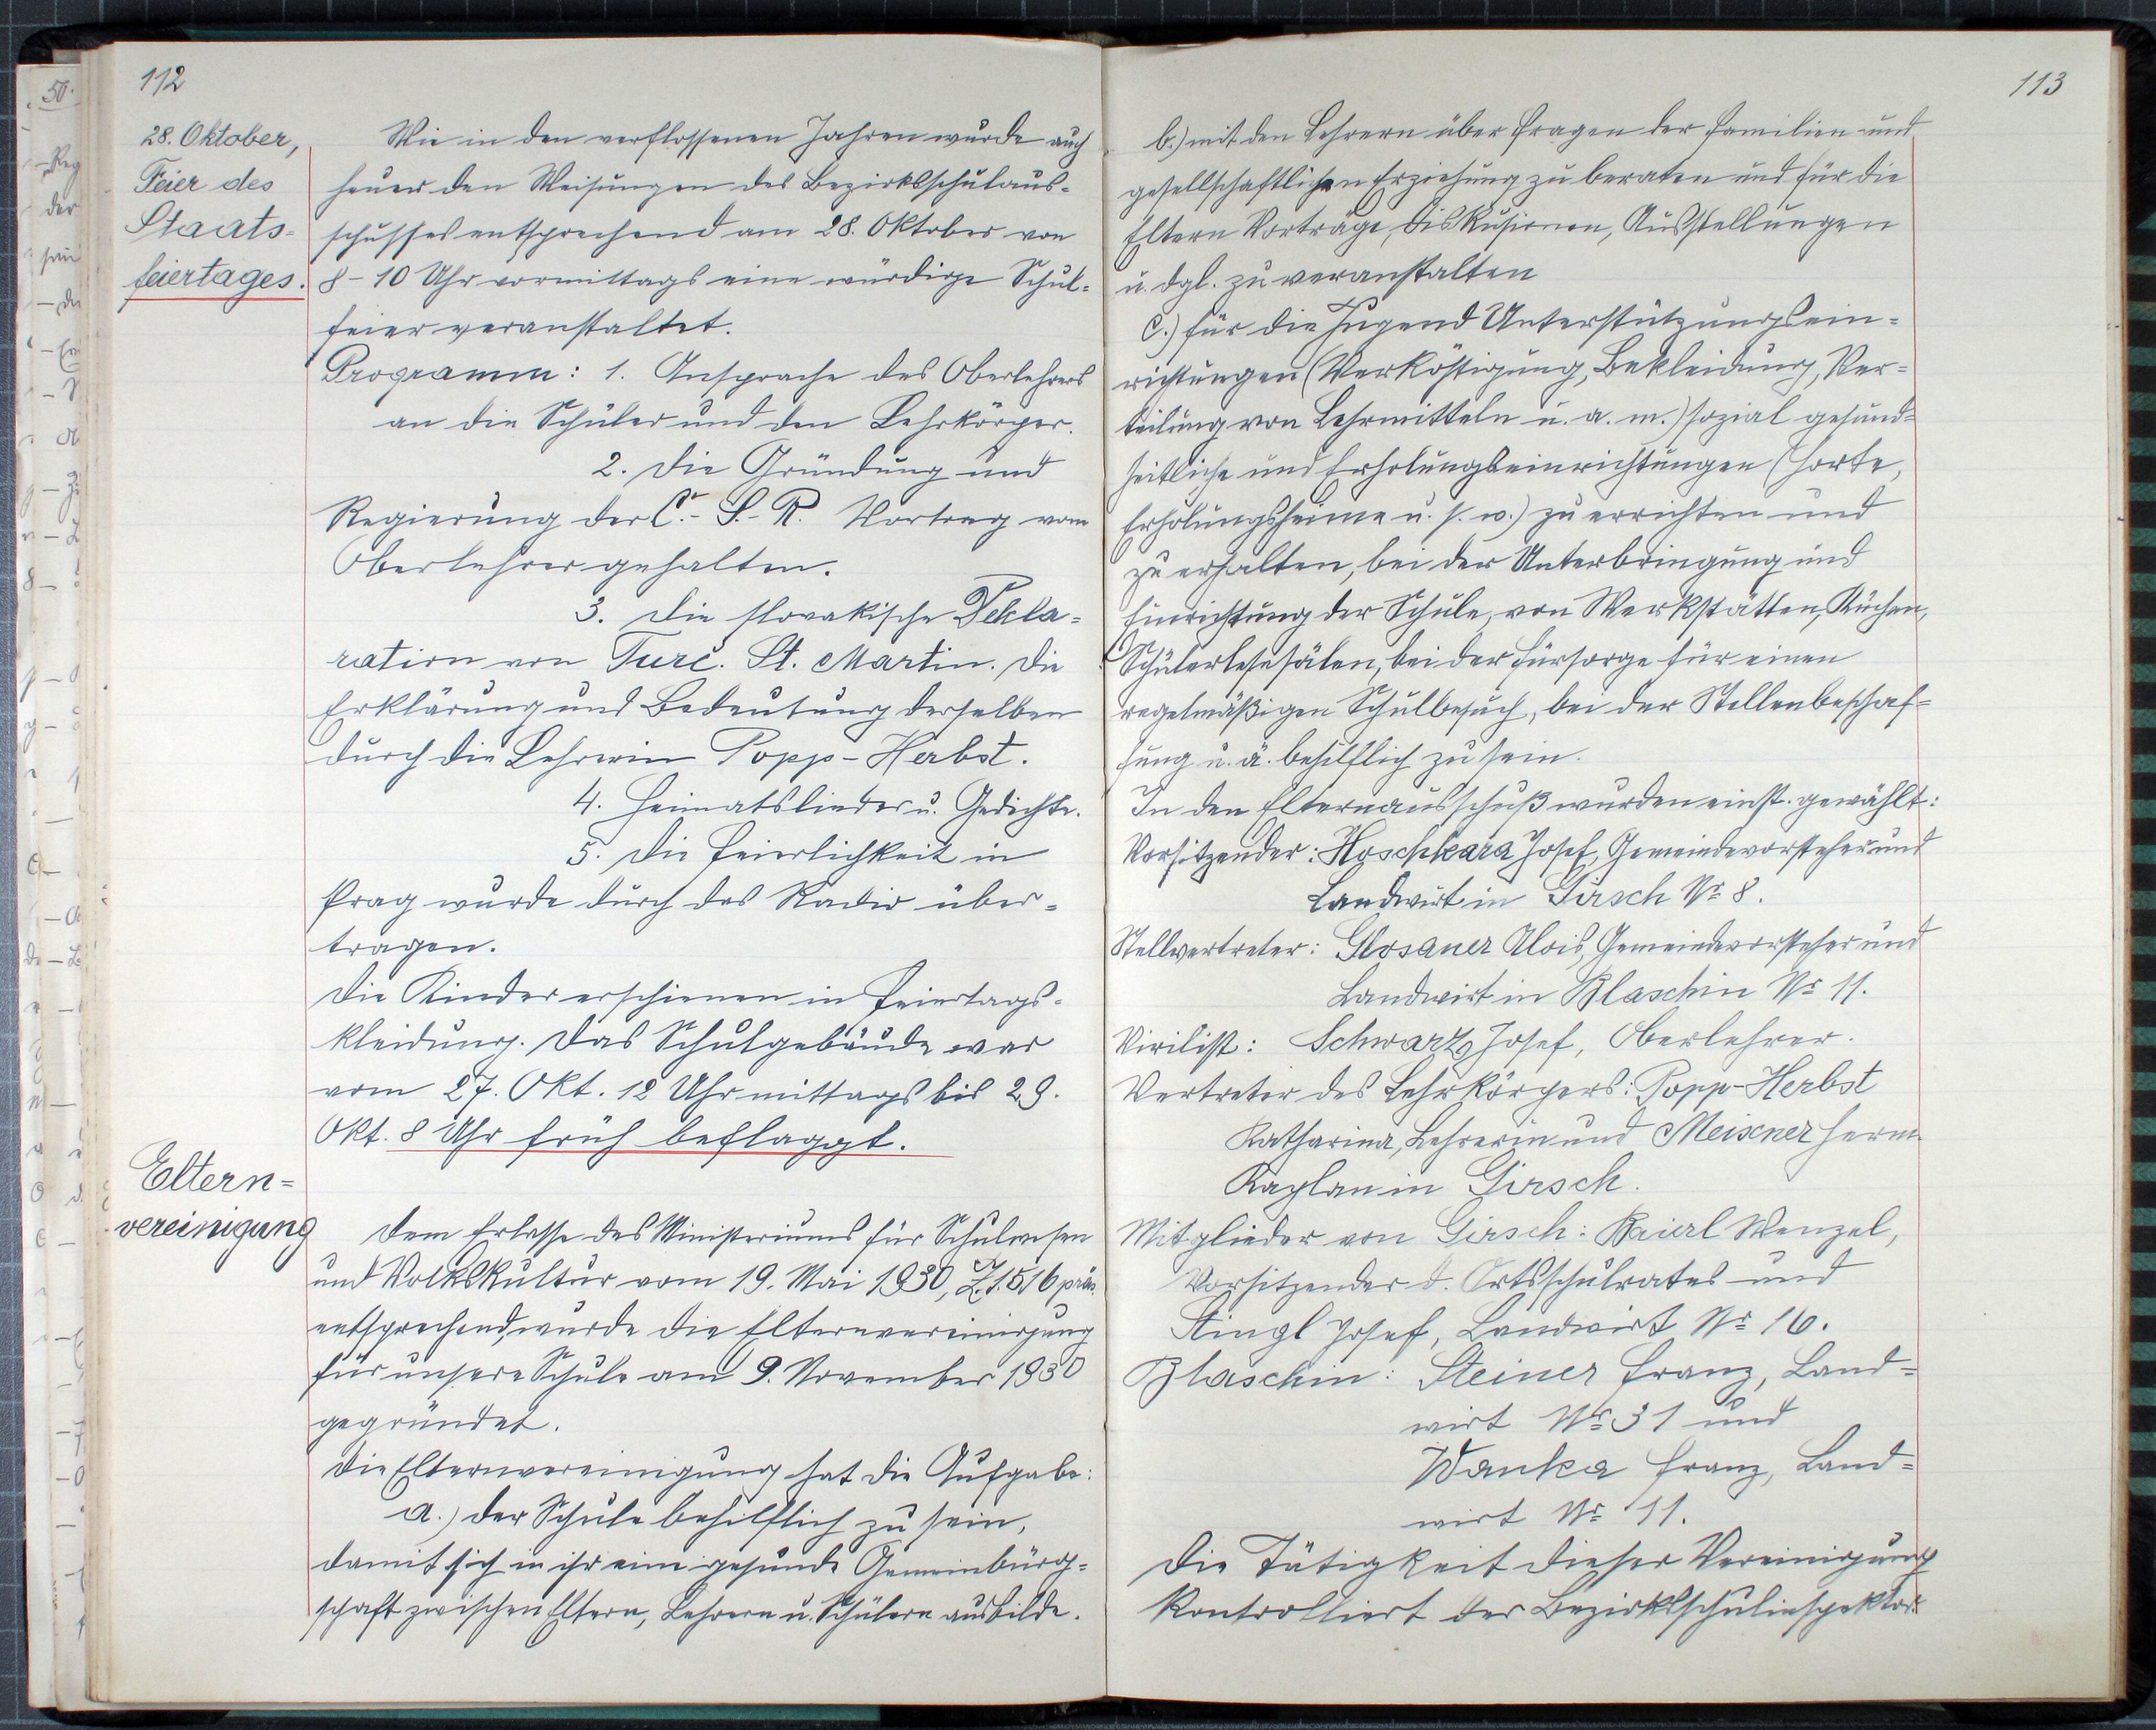 112
28. Oktober,
Feier des
Staats-
feiertages.
Wie in den verflossenen Jahren wurde auch
heuer den Weisungen des Bezirksschulaus-
schusses entsprechend am 28. Oktober von
8-10 Uhr vormittags eine würdige Schul-
feier veranstaltet.
Programm: 1. Ansprache des Oberlehrers
an die Schüler und den Lehrkörper.
2. Die Gründung und
Regierung der Č.-S.-R. Vortrag vom
Oberlehrer gehalten.
3. Die slovakische Dekla-
ration von Turč. St. Martin. Die
Erklärung und Bedeutung derselben
durch die Lehrerin Popp-Herbst.
4. Heimatslieder u. Gedichte.
5. Die Feierlichkeit in
Prag wurde durch das Radio über-
tragen.
Die Kinder erschienen in Feiertags-
kleidung. Das Schulgebäude war
vom 27. Okt. 12 Uhr mittags bis 29.
Okt. 8 Uhr früh beflaggt.
Eltern-
vereinigung
Dem Erlasse des Ministeriums für Schulwesen
und Volkskultur vom 19. Mai 1930, Z. 1516 präs.
entsprechend, wurde die Elternvereinigung
für unsere Schule am 9. November 1930
gegründet.
Die Elternvereinigung hat die Aufgabe:
a.) der Schule behilflich zu sein,
damit sich in ihr eine gesunde Gemeinbürg-
schaft zwischen Eltern, Lehrern u. Schülern ausbilde.
113
b.) mit den Lehrern über Fragen der Familien- und
gesellschaftlichen Erziehung zu beraten und für die
Eltern Vorträge, Diskusionen, Ausstellungen
u. dgl. zu veranstalten
c.) für die Jugend Unterstützungsein-
richtungen (Verköstigung, Bekleidung, Ver-
teilung von Lehrmitteln u. a. m.) sozial gesund-
heitliche und Erholungseinrichtungen (Horte,
Erholungsheime u. s. w.) zu errichten und
zu erhalten, bei der Unterbringung und
Einrichtung der Schule, von Werkstätten, Küchen,
Schülerlesesälen, bei der Fürsorge für einen
regelmäßigen Schulbesuch, bei der Stellenbeschaf-
fung u. ä. behilflich zu sein.
In den Elternausschuß wurden einst. gewählt:
Vorsitzender: Hoschkara Josef, Gemeindevorsteher und
Landwirt in Girsch Nr 8.
Stellvertreter: Glosauer Alois, Gemeindevorsteher und
Landwirt in Blaschin Nr 11.
Virilist: Schwarz Josef, Oberlehrer.
Vertreter des Lehrkörpers: Popp-Herbst
Katharina, Lehrerin und Meixner Herm.
Kaplan in Girsch.
Mitglieder von Girsch: Baierl Wenzel,
Vorsitzender d. Ortsschulrates und
Stingl Josef, Landwirt Nr 16.
Blaschin: Steiner Franz, Land-
wirt Nr 31 und
Wanka Franz, Land-
wirt Nr 11.
Die Tätigkeit dieser Vereinigung
kontrolliert der Bezirksschulinspektor.